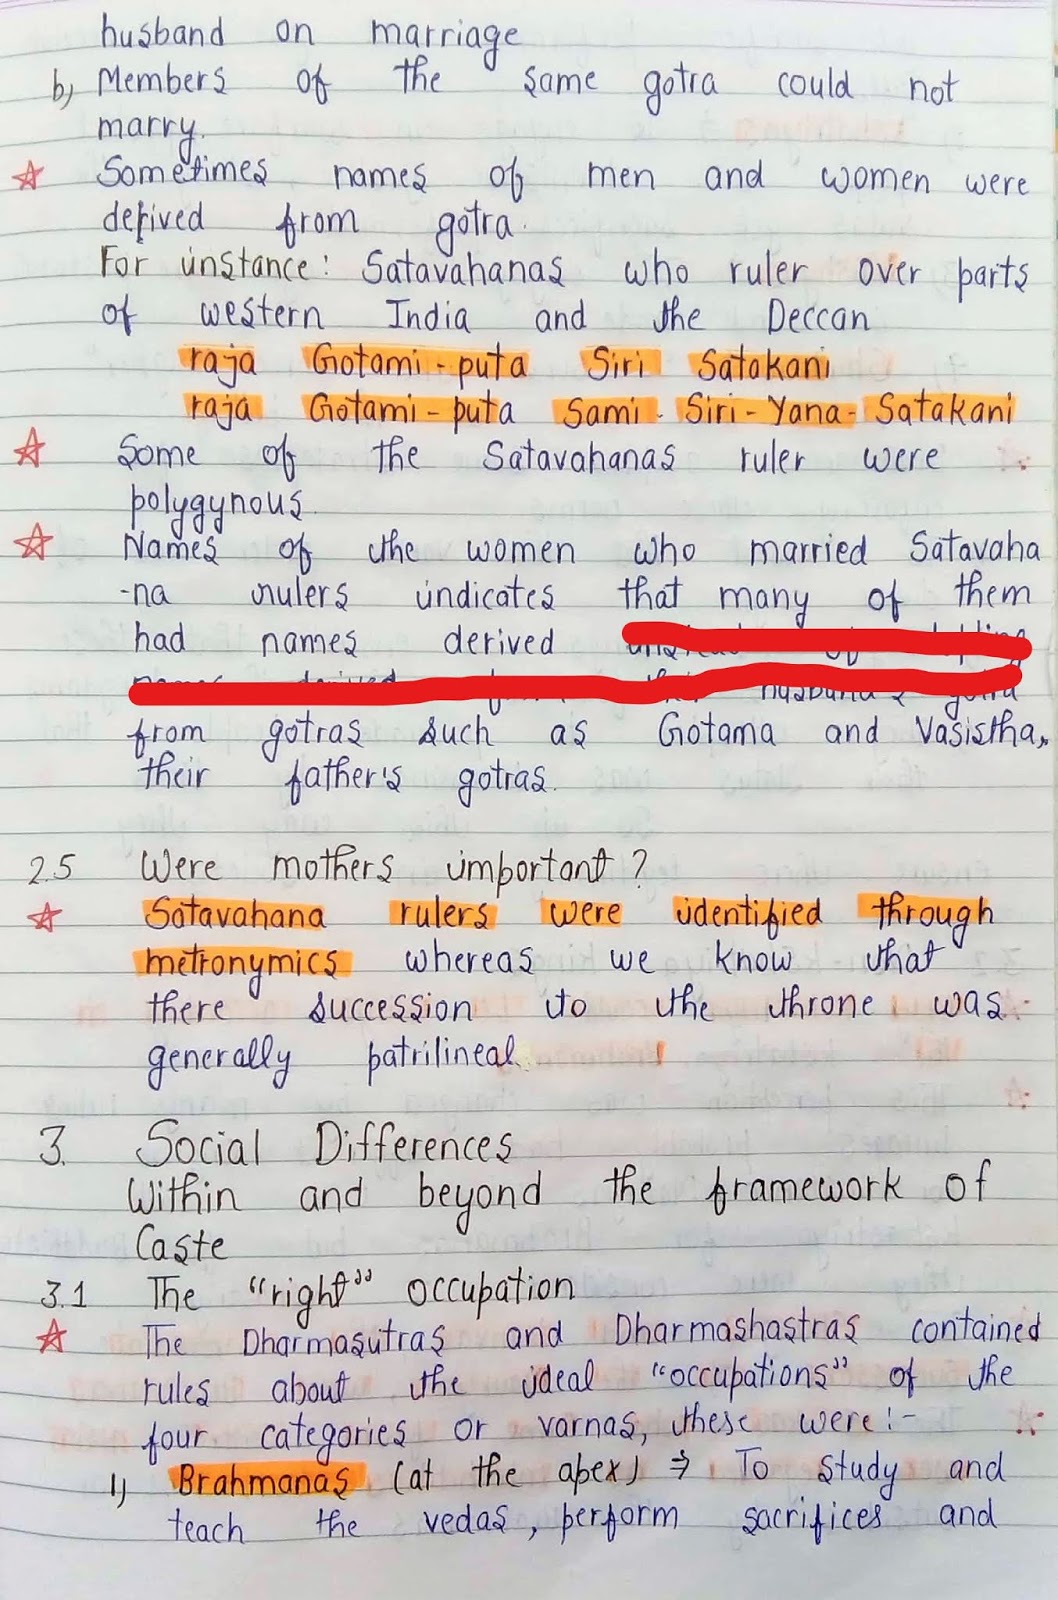 husband on marriage
b) Members of the same gotra could not
marry.
Sometimes names of men and women were
derived from gotra.
For instance: Satavahanas who ruler over parts
of western India and the Deccan
raja Gotami-puta Siri Satakani
raja Gotami-puta Sami-Siri-Yana-Satakani
Some of the Satavahanas ruler were
polygynous.
Names of the women who married Satavaha
-na rulers indicates that many of them
had names derived
husband's gotra
from gotras such as Gotama and Vasistha,
their father's gotras.
2.5 Were mothers important?
Satavahana rulers were identified through
metronymics whereas we know that
there succession to the throne was
generally patrilineal.
3. Social Differences
Within and beyond the framework of
Caste
3.1 The "right" occupation
The Dharmasutras and Dharmashastras contained
rules about the ideal "occupations" of the
four categories or varnas, these were:-
1) Brahmanas (at the apex) ⇒ To study and
teach the vedas, perform sacrifices and